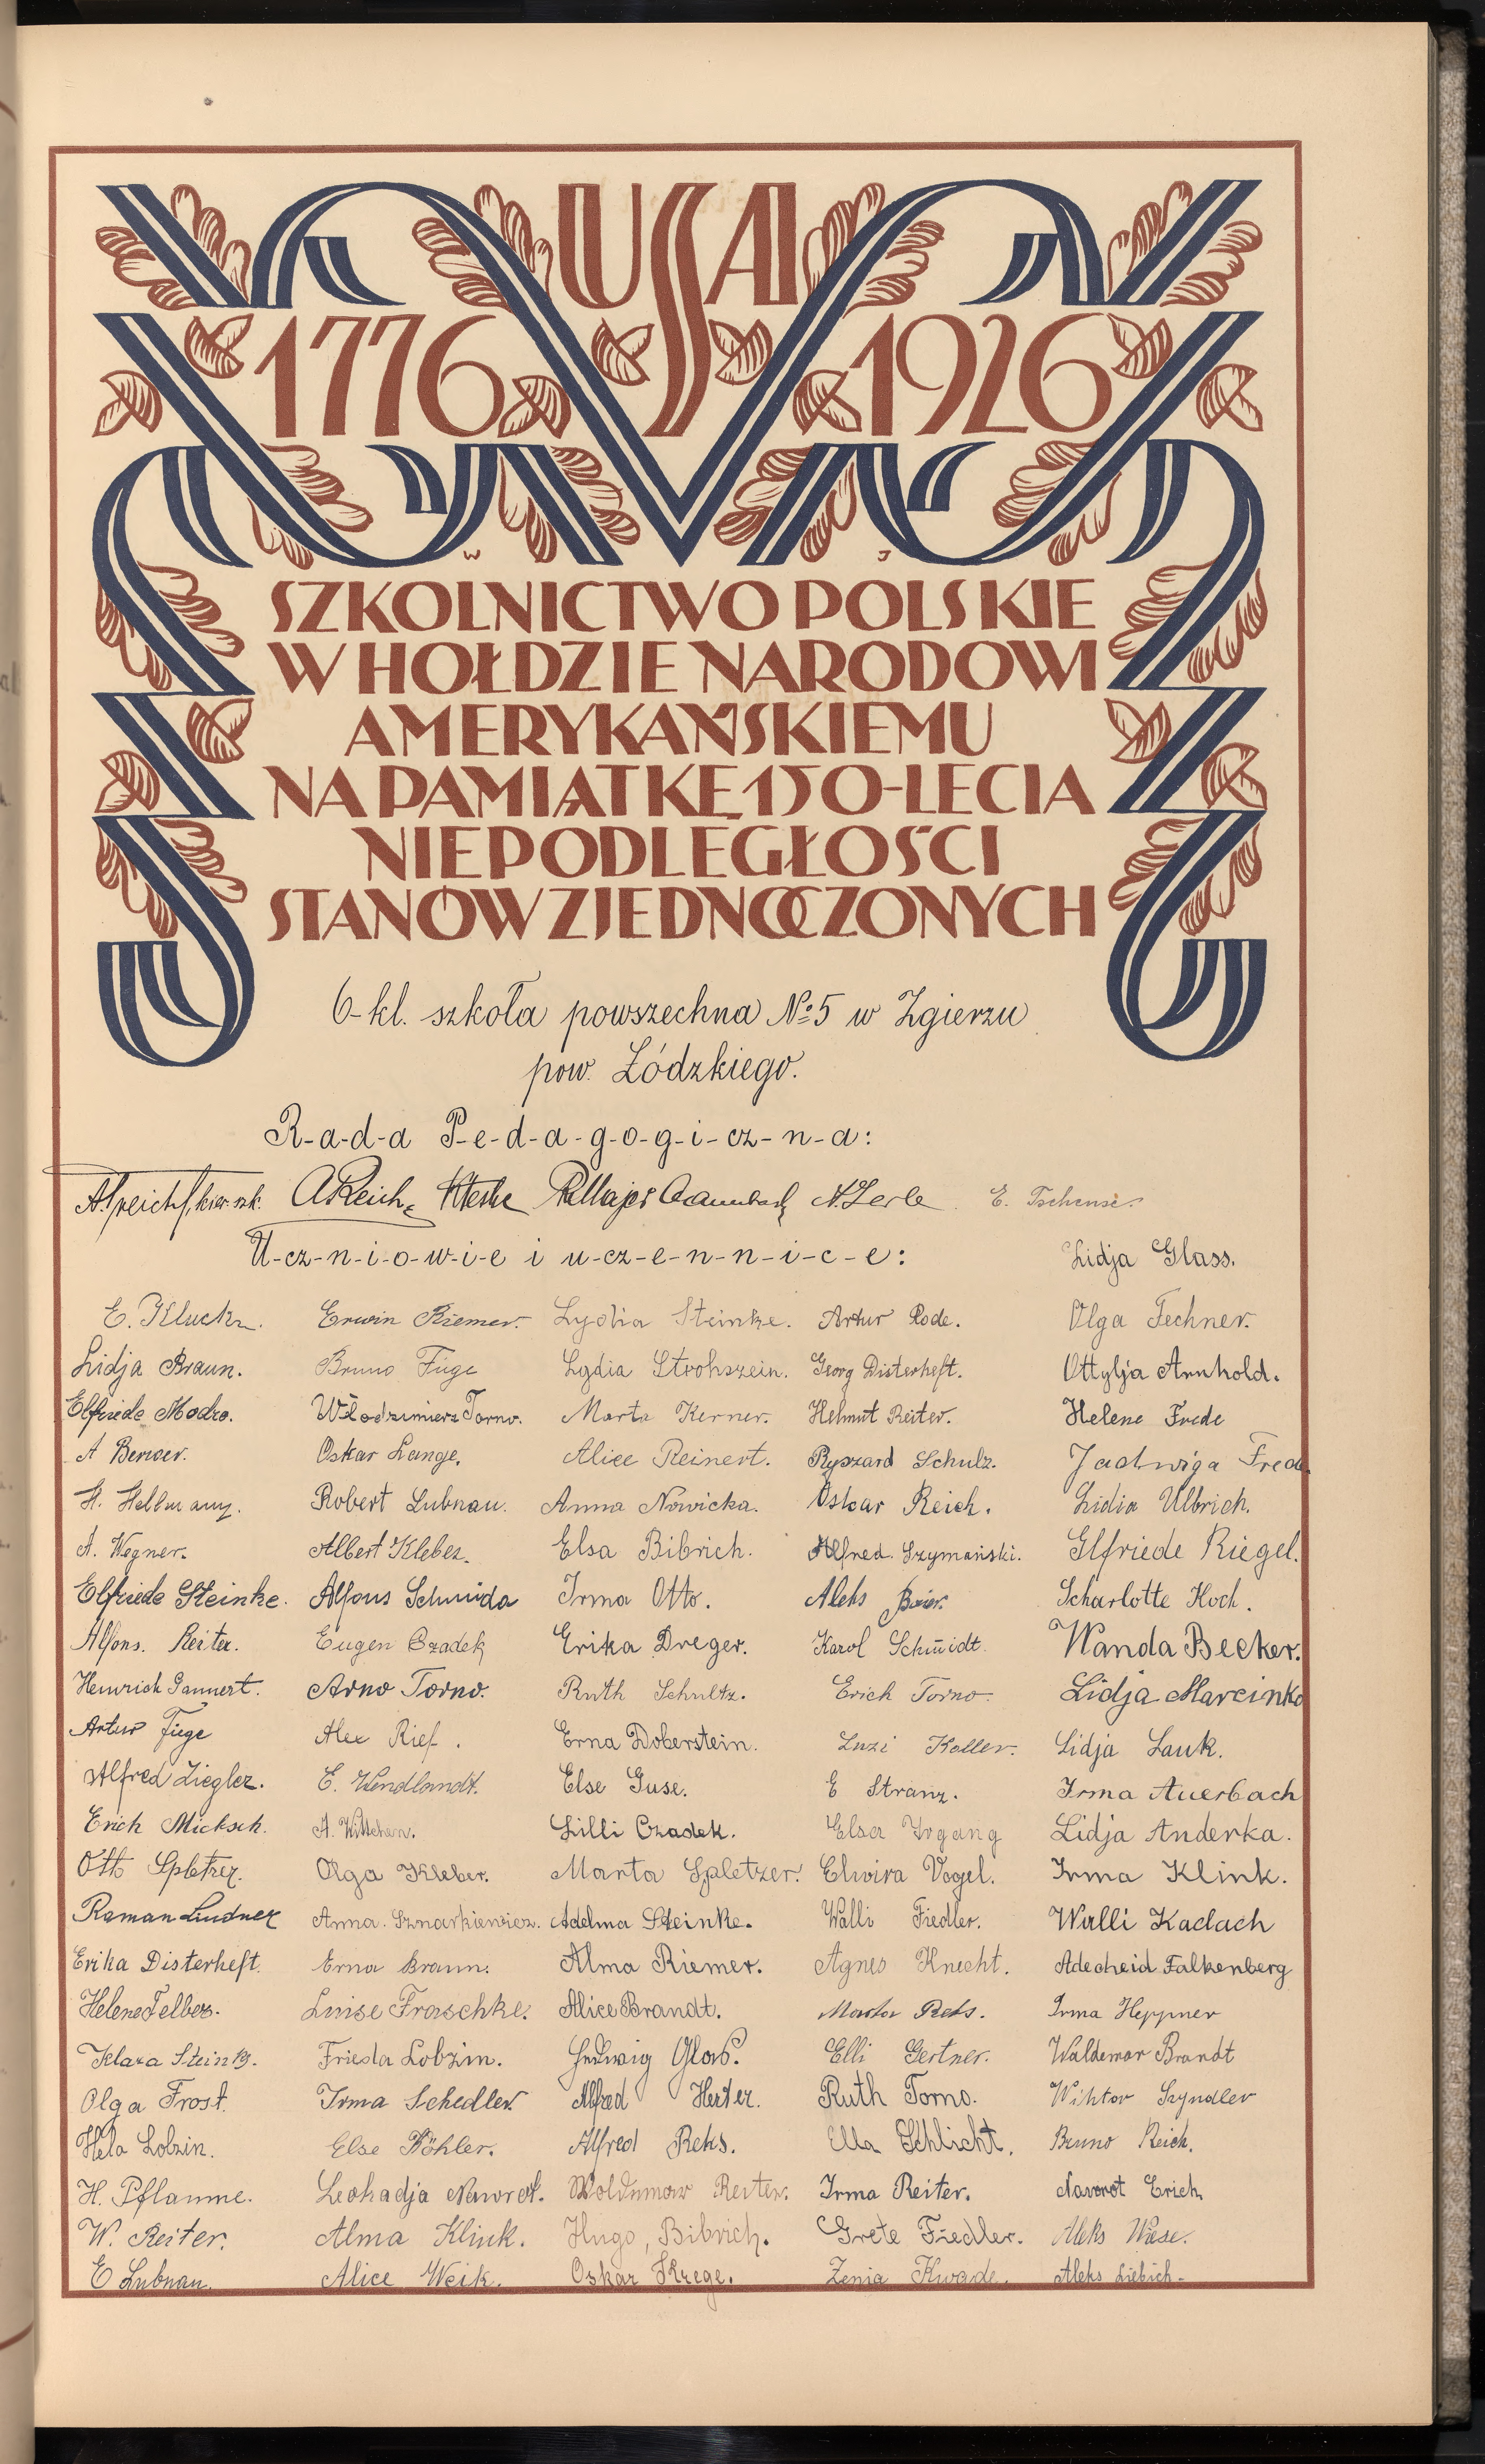 USA
1776 1926
W J
SZKOLNICTWO POLSKIE
W HOŁDZIE NARODOWI
AMERYKAŃSKIEMU
NA PAMIĄTKĘ 150-LECIA
NIEPODLEGŁOŚCI
STANÓW ZJEDNOCZONYCH
6-kl. szkoła powszechna № 5 w Zgierzu
pow. Łódzkiego.
R-a-d-a P-e-d-a-g-o-g-i-cz-n-a:
kier. szk. A Reich N. Zerbe E. Tschensè.
U-cz-n-i-o-w-i-e i u-cz-e-n-n-i-c-e: Lidja Glass.
E. Kluck. Erwin Riemer. Lydia Steinke. Artur Rode. Olga Fechner.
Lidja Braun. Bruno Füge Lydia Strohszein. Georg Disterheft. Ottylja Arnhold.
Elfriede Modro. Włodzimierz Torno. Marta Kerner. Helmut Reiter. Helene Frede
A Oskar Lange. Alice Reinert. Ryszard Schulz. Jadwiga Frede
H. Robert Lubnau. Anna Nowicka. Oskar Reich. Lidia Ulbrich.
A. Wegner. Albert Kleber. Elsa Bibrich. Alfred. Szymański. Elfriede Riegel.
Elfriede Steinke. Alfons Schmida Irma Otto. Aleks Baier. Scharlotte Koch.
Alfons. Reiter. Eugen Czadek Erika Dreger. Karol Schmidt. Wanda Becker.
Heinrich Gannert. Arno Torno. Ruth Schultz. Erich Torno. Lidja Marcinko
Artur Füge Alex Rief. Erna Doberstein. Luzi Koller. Lidja Lauk.
Alfred Ziegler. E. Wendlandt. Else Guse. E Stranz. Irma Auerbach
Erich Micksch. A. Lilli Czadek. Elsa Irgang Lidja Anderka.
Otto Spletzer. Olga Kleber. Marta Spletzer. Elwira Vogel. Irma Klink.
Roman Lindner Anna. Adelma Steinke. Walli Fiedler. Walli Kadach
Erika Disterheft. Erna Braun. Alma Riemer. Agnes Knecht. Adecheid Falkenberg
Helene Felber. Luise Fraschke. Alice Brandt. Marta Reks. Irma Heppner
Klara Steinke. Frieda Lobzin. Hedwig Glass. Elli Gertner. Waldemar Brandt
Olga Frost. Irma Schedler. Alfred Herter. Ruth Torno. Wiktor Szyndler
Hela Lobzin. Else Köhler. Alfred Reks. Ella Schlicht. Bruno Reich.
H. Pflaume. Leokadja Nawrot. Woldemar Reiter. Irma Reiter. Navorot Erich
W. Reiter. Alma Klink. Hugo, Bibrich. Grete Fiedler. Aleks Wiese.
E Lubnau. Alice Weik. Oskar Krege. Zenia Kwade. Aleks Liebich-